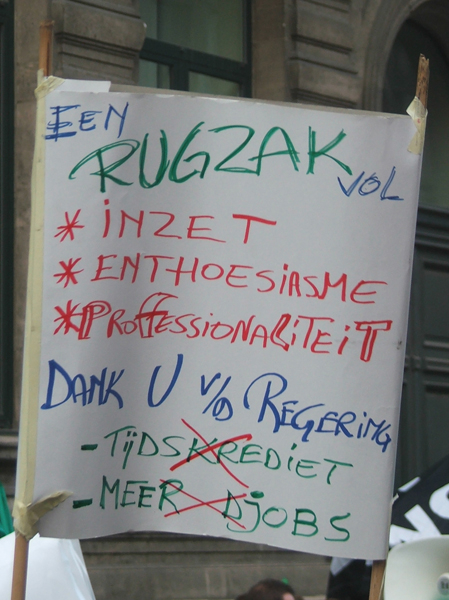 EEN
RUGZAK
VOL
* INZET
* ENTHOESIASME
* PROFFESSIONALITEIT
DANK U V/D REGERING
- TIJDSKREDIET
- MEER DJOBS